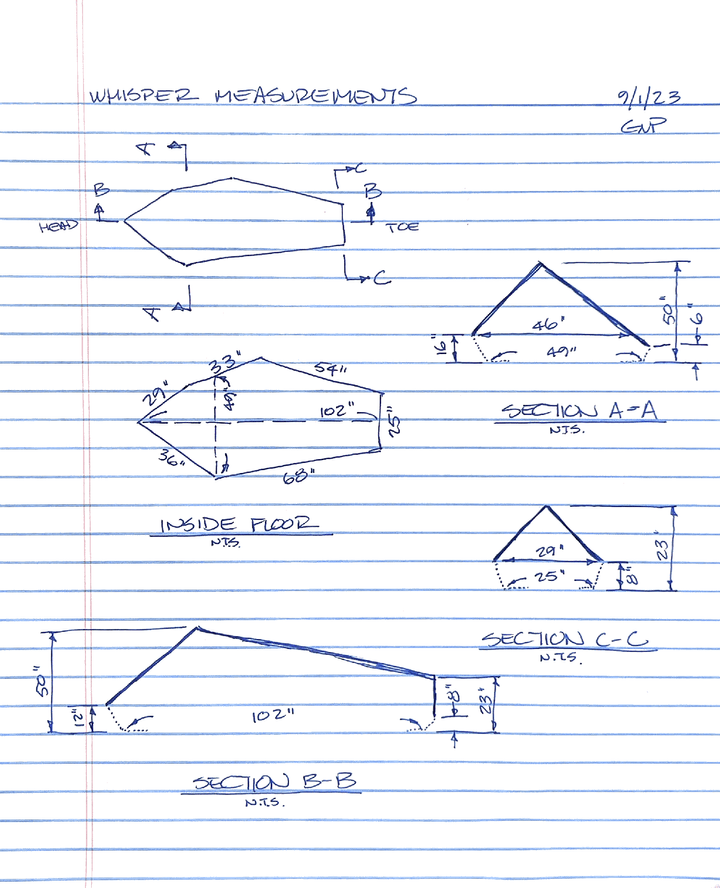 WHISPER MEASUREMENTS 9/1/23
GNP
A
C
B B
HEAD TOE
C
A
50"
6"
46"
16"
49"
SECTION A-A
N.T.S.
33"
54"
29"
49"
102"
25"
36"
68"
INSIDE FLOOR
N.T.S.
23"
29"
25"
8"
SECTION C-C
N.T.S.
50"
12"
102"
8"
23"
SECTION B-B
N.T.S.